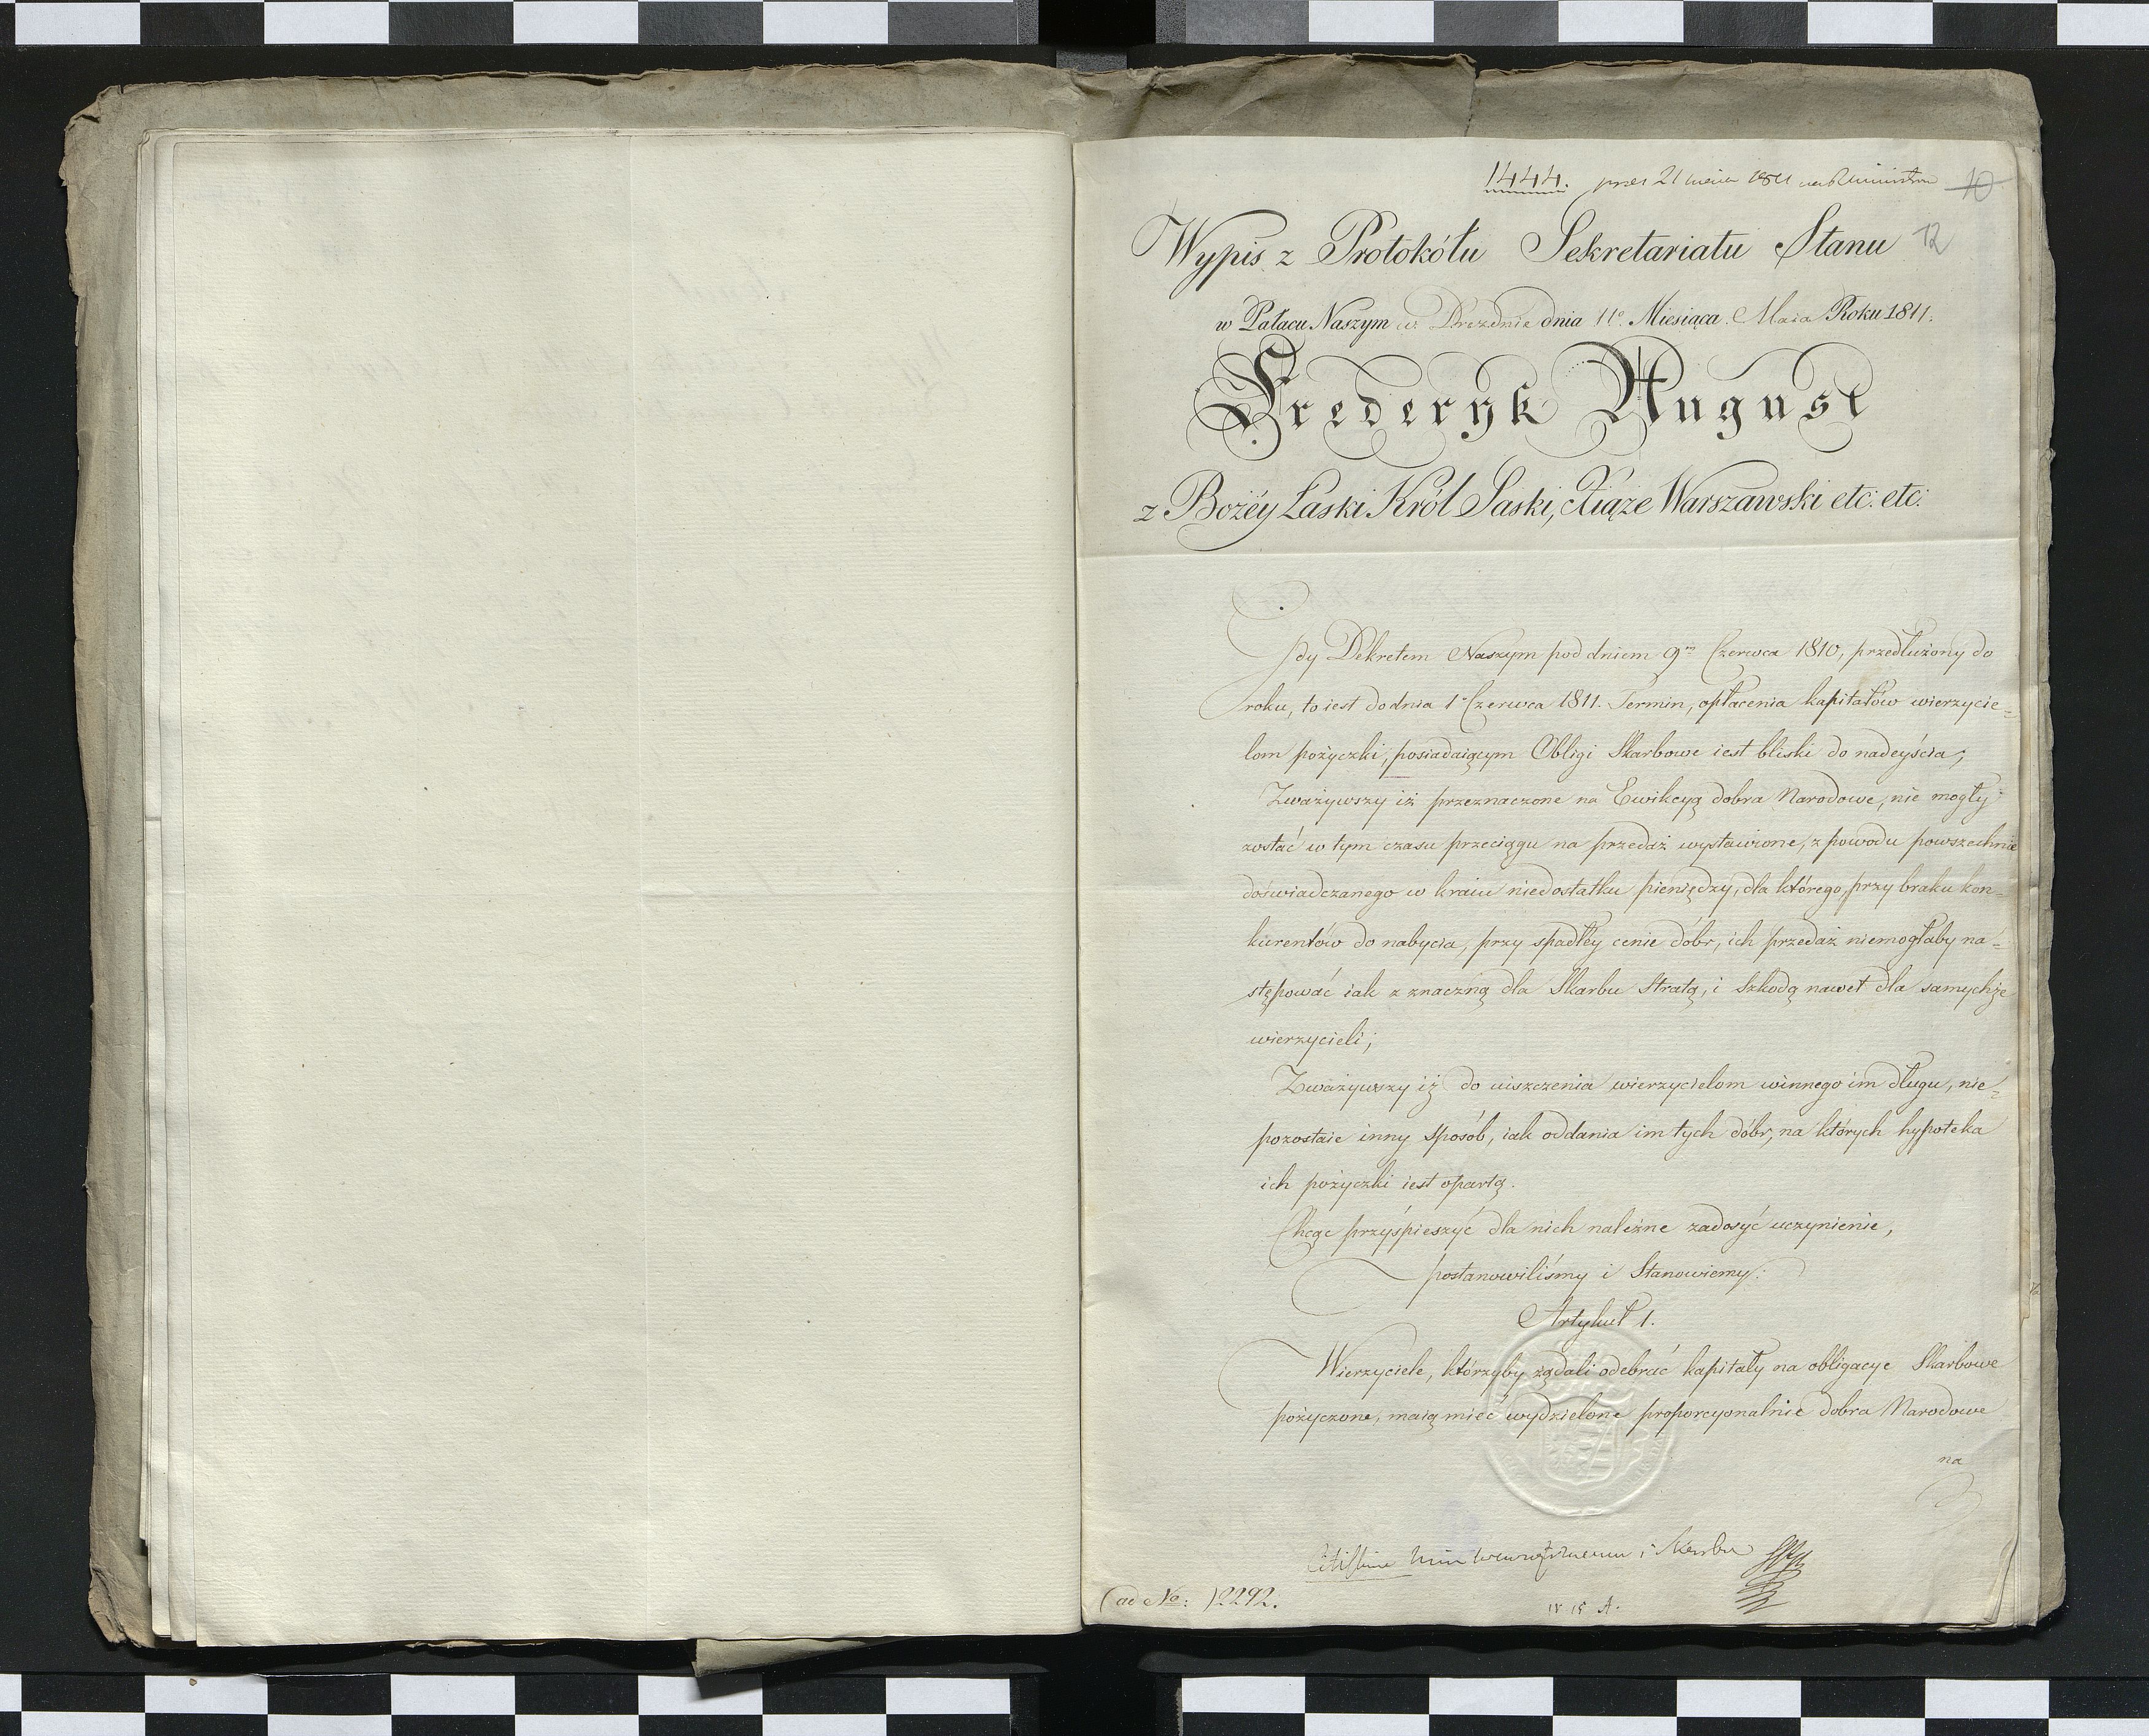 1444. 21 1811
10
Wypis z Protokółu Sekretariatu Stanu
12
w Pałacu Naszym w Dreznie dnia 11º Miesiąca Maia Roku 1811.
Frederyk August
z Bożéy Łaski Król Saski, Xiąże Warszawski etc: etc:
Gdy Dekretem Naszym pod dniem 9m Czerwca 1810, przedłużony do
roku, to iest do dnia 1º Czerwca 1811. Termin, opłacenia kapitałów wierzycie=
lom pożyczki, posiadaiącym Obligi Skarbowe iest bliski do nadeyścia;
Zważywszy iż przeznaczone na Ewikcyą dobra Narodowe, nie mogły
zostać w tym czasu przeciągu na przedaż wystawione, z powodu powszechnie
doświadczanego w kraiu niedostatku pieniędzy, dla którego, przy braku kon=
kurentów do nabycia, przy spadłéy cenie dóbr, ich przedaż niemogłaby na=
stępować iak z znaczną dla Skarbu Stratą, i Szkodą nawet dla samychże
wierzycieli;
Zważywszy iż do uiszczenia wierzycielom winnego im długu, nie=
pozostaie inny sposób, iak oddania im tych dóbr, na których hypoteka
ich pożyczki iest opartą.
Chcąc przyśpieszyć dla nich należne zadosyć uczynienie,
postanowiliśmy i Stanowiemy:
Artykuł 1.
Wierzyciele, którzyby żądali odebrać kapitały na obligacye Skarbowe
pożyczone, maią mieć wydzielone proporcyonalnie dobra Narodowe
na
i Skarbu
(ad No: )2292.